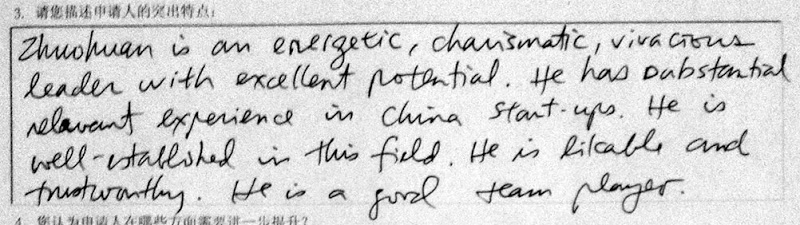 3. 请您描述申请人的突出特点:
Zhuohuan is an energetic, charismatic, vivacious
leader with excellent potential. He has substantial
relevant experience in China start-ups. He is
well-established in this field. He is likable and
trustworthy. He is a good team player.
4. 您认为申请人在哪些方面需要进一步提升?